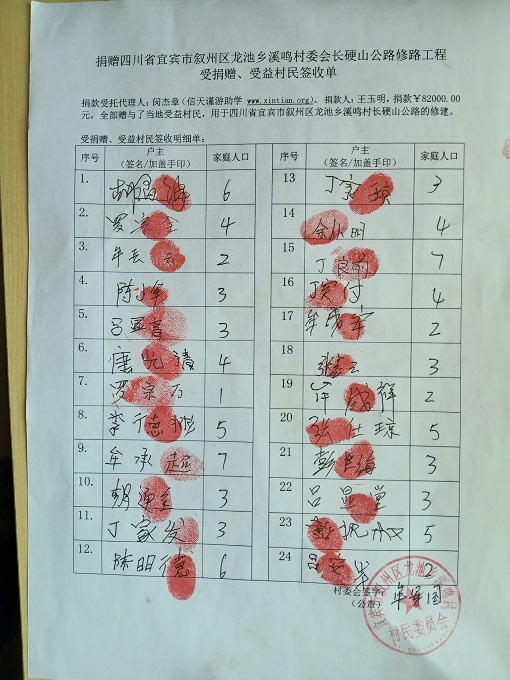 捐赠四川省宜宾市叙州区龙池乡溪鸣村委会长硬山公路修路工程
受捐赠、受益村民签收单
捐款受托代理人:闵杰章(信天谨游助学 www.xintian.org)。捐款人:王玉明,捐款￥82000.00
元,全部赠与了当地受益村民,用于四川省宜宾市叙州区龙池乡溪鸣村长硬山公路的修建。
受捐赠、受益村民签收明细单:
序号 户主 (签名/加盖手印) 家庭人口 序号 户主 (签名/加盖手印) 家庭人口
1. 6 13 丁家琼 3
2. 4 14 余小明 4
3. 2 15 丁良 7
4. 陈少军 3 16 付 4
5. 3 17 牟 2
6. 4 18 张 3
7. 罗宗万 1 19 许成祥 2
8. 李德彬 5 20 张仕琼 5
9. 牟承超 7 21 彭海 3
10. 胡 3 22 吕堂 3
11. 丁家发 3 23 5
12. 陈明德 6 24 吕 2
村委会签字: 牟
(公章)
宜宾市叙州区龙池乡溪鸣村
村民委员会